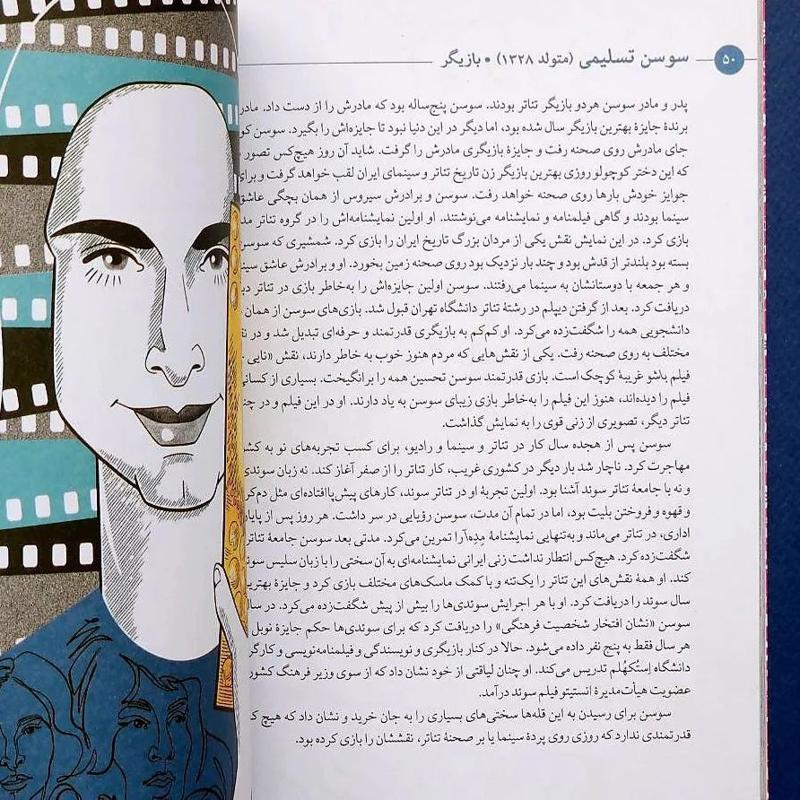 ۵۰
سوسن تسلیمی (متولد ۱۳۲۸) • بازیگر
پدر و مادر سوسن هردو بازیگر تئاتر بودند. سوسن پنج‌ساله بود که مادرش را از دست داد. مادر
برندهٔ جایزهٔ بهترین بازیگر سال شده بود، اما دیگر در این دنیا نبود تا جایزه‌اش را بگیرد. سوسن
جای مادرش روی صحنه رفت و جایزهٔ بازیگری مادرش را گرفت. شاید آن روز هیچ‌کس تصور
که این دختر کوچولو روزی بهترین بازیگر زن تاریخ تئاتر و سینمای ایران لقب خواهد گرفت و برای
جوایز خودش بارها روی صحنه خواهد رفت. سوسن و برادرش سیروس از همان بچگی عاشق
سینما بودند و گاهی فیلمنامه و نمایشنامه می‌نوشتند. او اولین نمایشنامه‌اش را در گروه تئاتر
بازی کرد. در این نمایش نقش یکی از مردان بزرگ تاریخ ایران را بازی کرد. شمشیری که سوسن
بسته بود بلندتر از قدش بود و چند بار نزدیک بود روی صحنه زمین بخورد. او و برادرش عاشق
و هر جمعه با دوستانشان به سینما می‌رفتند. سوسن اولین جایزه‌اش را به‌خاطر بازی در تئاتر
دریافت کرد. بعد از گرفتن دیپلم در رشتهٔ تئاتر دانشگاه تهران قبول شد. بازی‌های سوسن از همان
دانشجویی همه را شگفت‌زده می‌کرد. او کم‌کم به بازیگری قدرتمند و حرفه‌ای تبدیل شد و در
مختلف به روی صحنه رفت. یکی از نقش‌هایی که مردم هنوز خوب به خاطر دارند، نقش «نایی
فیلم باشو غریبهٔ کوچک است. بازی قدرتمند سوسن تحسین همه را برانگیخت. بسیاری از کسانی
فیلم را دیده‌اند، هنوز این فیلم را به‌خاطر بازی زیبای سوسن به یاد دارند. او در این فیلم و در
تئاتر دیگر، تصویری از زنی قوی را به نمایش گذاشت.
سوسن پس از هجده سال کار در تئاتر و سینما و رادیو، برای کسب تجربه‌های نو به
مهاجرت کرد. ناچار شد بار دیگر در کشوری غریب، کار تئاتر را از صفر آغاز کند. نه زبان سوئدی
و نه با جامعهٔ تئاتر سوئد آشنا بود. اولین تجربهٔ او در تئاتر سوئد، کارهای پیش‌پاافتاده‌ای مثل
و قهوه و فروختن بلیت بود، اما در تمام آن مدت، سوسن رؤیایی در سر داشت. هر روز پس از
اداری، در تئاتر می‌ماند و به‌تنهایی نمایشنامهٔ مده‌آ را تمرین می‌کرد. مدتی بعد سوسن جامعهٔ تئاتر
شگفت‌زده کرد. هیچ‌کس انتظار نداشت زنی ایرانی نمایشنامه‌ای به آن سختی را با زبان سلیس
کند. او همهٔ نقش‌های این تئاتر را یک‌تنه و با کمک ماسک‌های مختلف بازی کرد و جایزهٔ
سال سوئد را دریافت کرد. او با هر اجرایش سوئدی‌ها را بیش از پیش شگفت‌زده می‌کرد. در
سوسن «نشان افتخار شخصیت فرهنگی» را دریافت کرد که برای سوئدی‌ها حکم جایزهٔ نوبل
هر سال فقط به پنج نفر داده می‌شود. حالا در کنار بازیگری و نویسندگی و فیلمنامه‌نویسی و
دانشگاه اِستُکهُلم تدریس می‌کند. او چنان لیاقتی از خود نشان داد که از سوی وزیر فرهنگ کشور
عضویت هیأت‌مدیرهٔ انستیتو فیلم سوئد درآمد.
سوسن برای رسیدن به این قله‌ها سختی‌های بسیاری را به جان خرید و نشان داد که هیچ
قدرتمندی ندارد که روزی روی پردهٔ سینما یا بر صحنهٔ تئاتر، نقششان را بازی کرده بود.